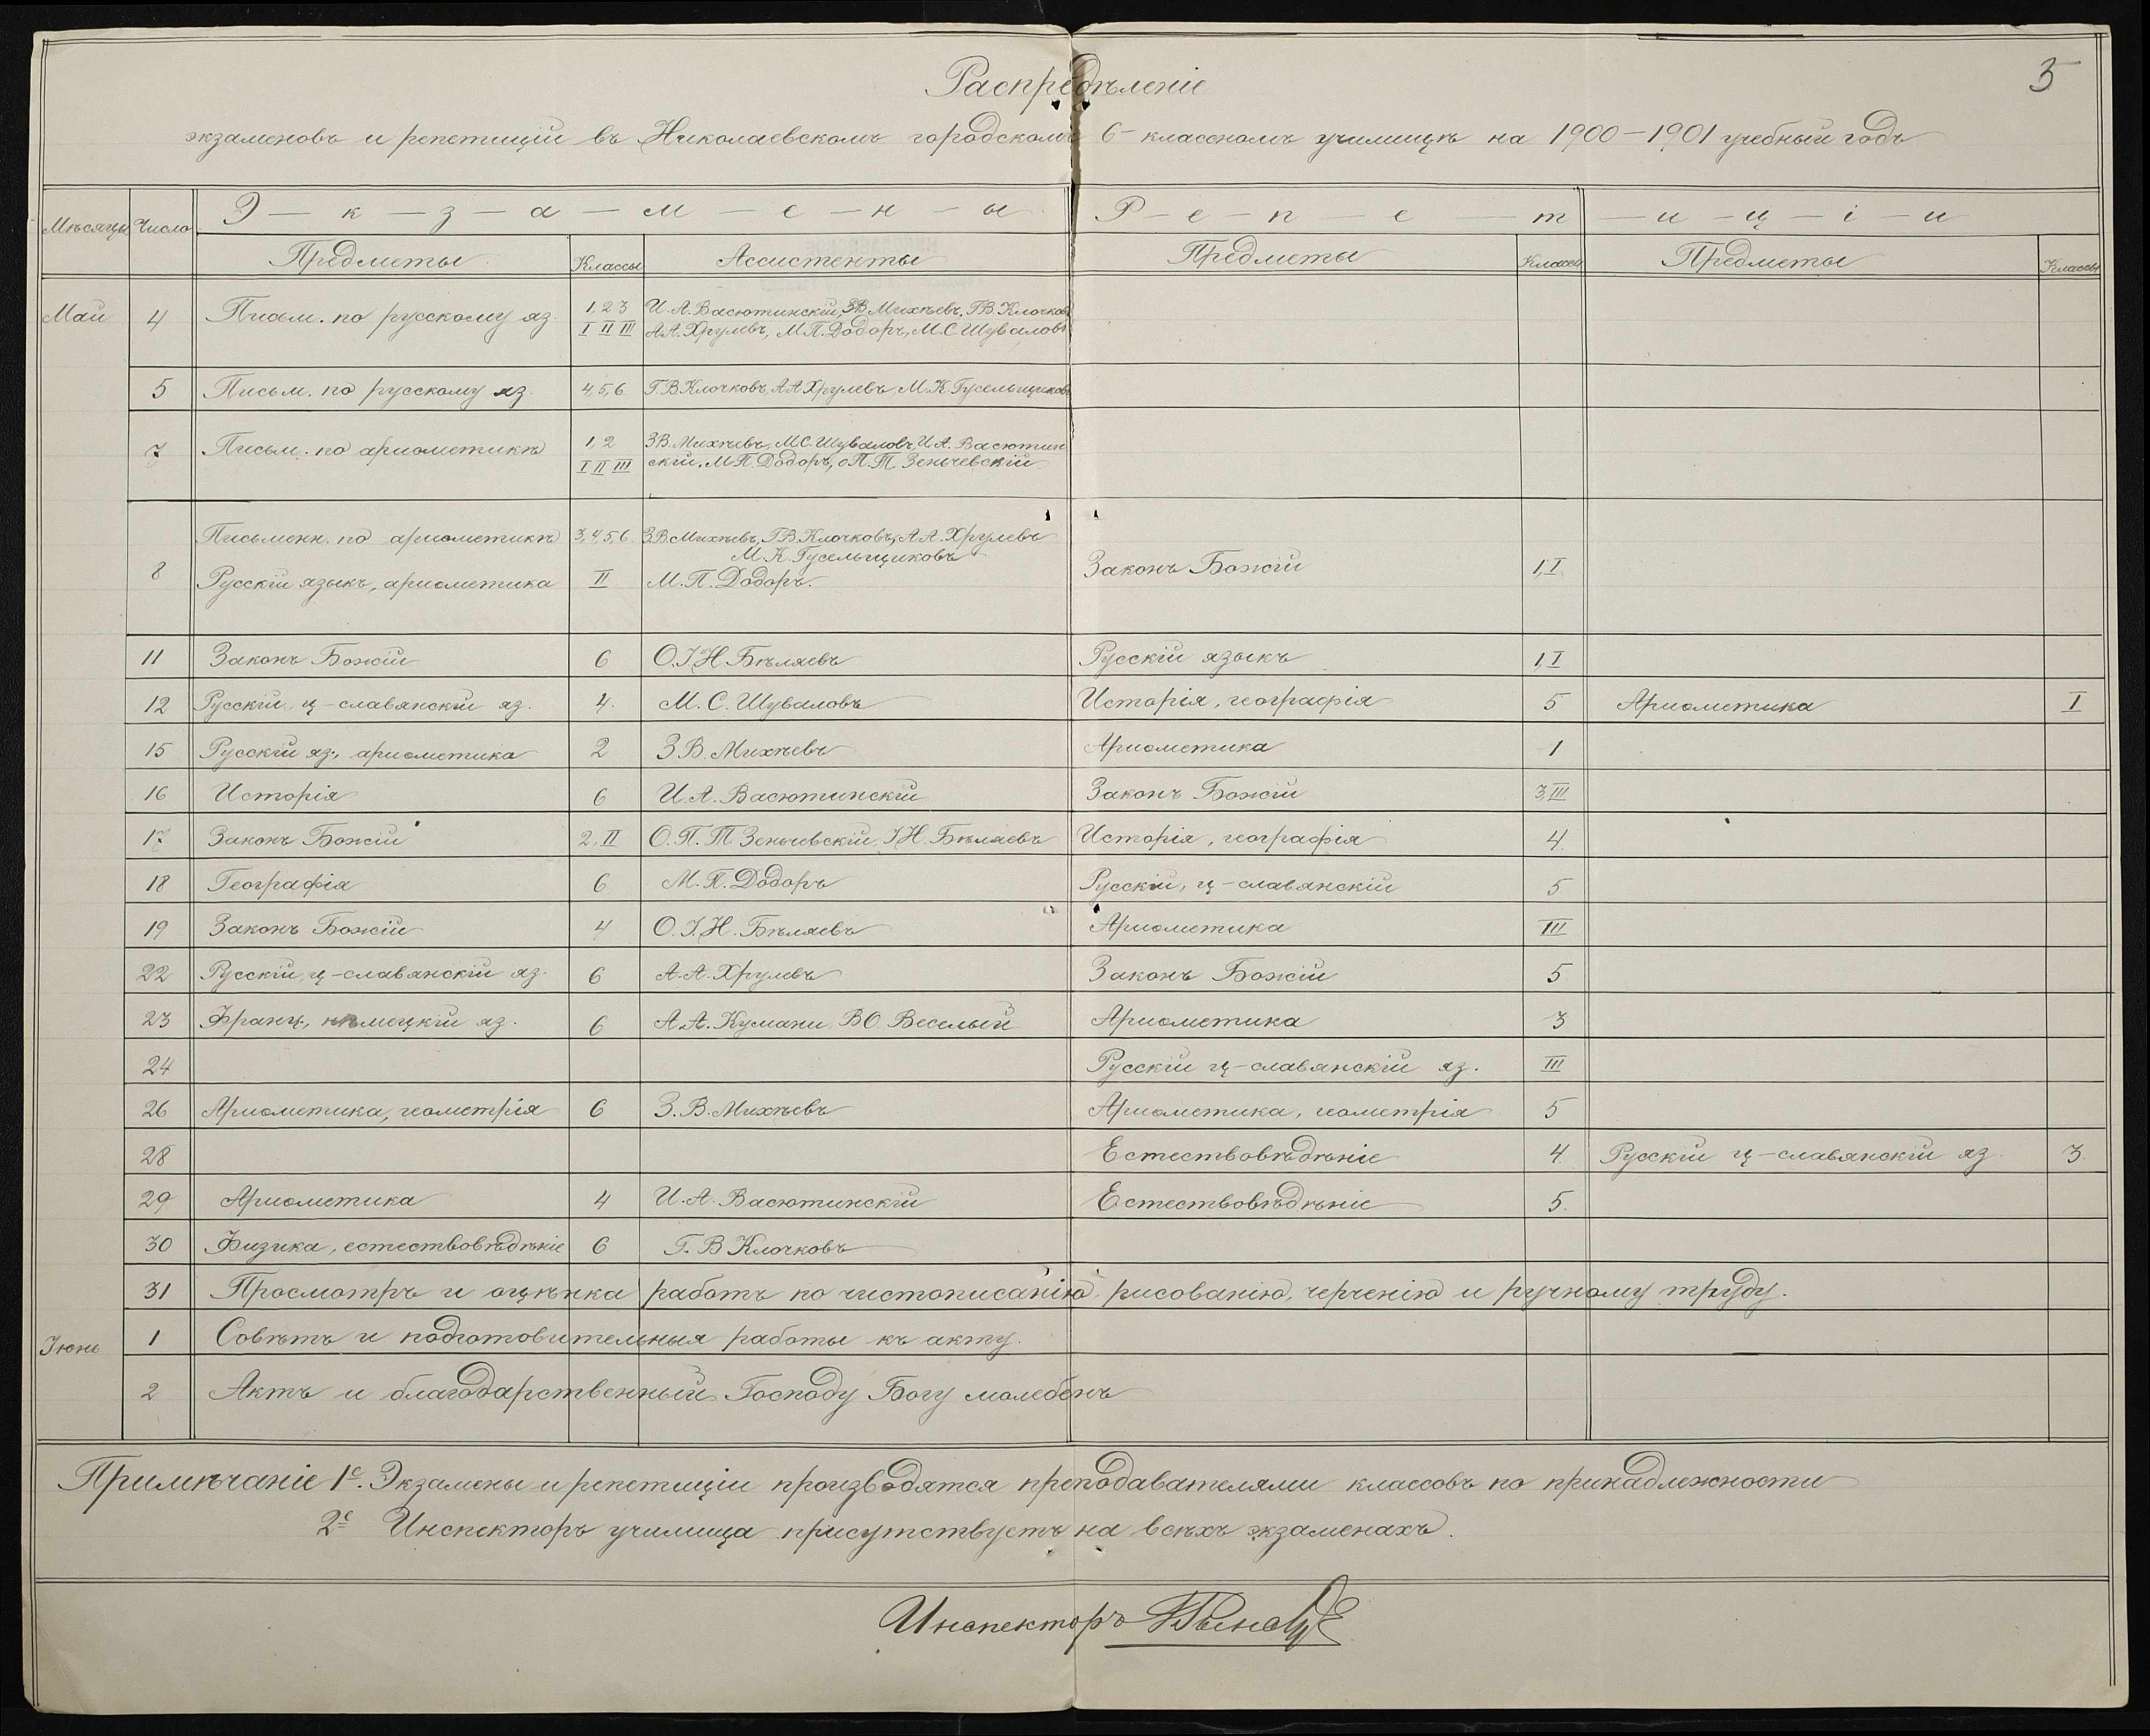 5
Распредѣленіе
экзаменовъ и репетицій въ Николаевскомъ городскомъ 6-классномъ училищѣ на 1900-1901 учебный годъ
Мѣсяцы Число Э-к-з-а-м-е-н-ы Р-е-п-е-т-и-ц-і-и
Предметы Классы Ассистенты Предметы Классы Предметы Классы
Май 4 Письм. по русскому яз. 1, 2 3 И. А. Васютинскій, З.В. Михѣевъ, Г.В. Клочковъ
I II III А.А. Хрулевъ, М.П. Додоръ, М.С. Шуваловъ
5 Письм. по русскому яз. 4, 5, 6 Г.В. Клочковъ, А.А. Хрулевъ, М.К. Гусельщиковъ
7 Письм. по ариѳметикѣ 1, 2 З.В. Михѣевъ, М.С. Шуваловъ, И.А. Васютин
I II III скій, М.П. Додоръ, о П.Т. Зеньчевскій
Письменн. по ариѳметикѣ 3, 4, 5, 6 З.В. Михѣевъ, Г.В. Клочковъ, А.А. Хрулевъ
М.К. Гусельщиковъ
8 Русскій языкъ, ариѳметика II М.П. Додоръ. Законъ Божій 1, I
11 Законъ Божій 6 О.І.Н. Бѣляевъ Русскій языкъ 1, I
12 Русскій, ц-славянскій яз. 4. М.С. Шуваловъ Исторія, географія 5 Ариѳметика I
15 Русскій яз., ариѳметика 2 З.В. Михѣевъ Ариѳметика 1
16 Исторія 6 И.А. Васютинскій Законъ Божій 3, III
17 Законъ Божій 2, II О.П.Т. Зеньчевскій, І.Н. Бѣляевъ Исторія, географія 4.
18 Географія 6 М.П. Додоръ Русскій, ц-славянскій 5
19 Законъ Божій 4 О.І.Н. Бѣляевъ Ариѳметика III
22 Русскій, ц-славянскій яз. 6 А.А. Хрулевъ Законъ Божій 5
23 Франц., нѣмецкій яз. 6 А.А. Кумани, В.О. Веселый Ариѳметика 3
24 Русскій ц-славянскій яз. III
26 Ариѳметика, геометрія 6 З.В. Михѣевъ Ариѳметика, геометрія 5
28 Естествовѣдѣніе 4. Русскій ц-славянскій яз. 3.
29 Ариѳметика 4 И.А. Васютинскій Естествовѣдѣніе 5.
30 Физика, естествовѣдѣніе 6 Г.В. Клочковъ
31 Просмотръ и оцѣнка работъ по чистописанію, рисованію, черченію и ручному труду.
Іюнь 1 Совѣтъ и подготовительныя работы къ акту.
2 Актъ и благодарственный Господу Богу молебенъ
Примѣчаніе 1е. Экзамены и репетиціи производятся преподавателями классовъ по принадлежности
2е Инспекторъ училища присутствуетъ на всѣхъ экзаменахъ.
Инспекторъ